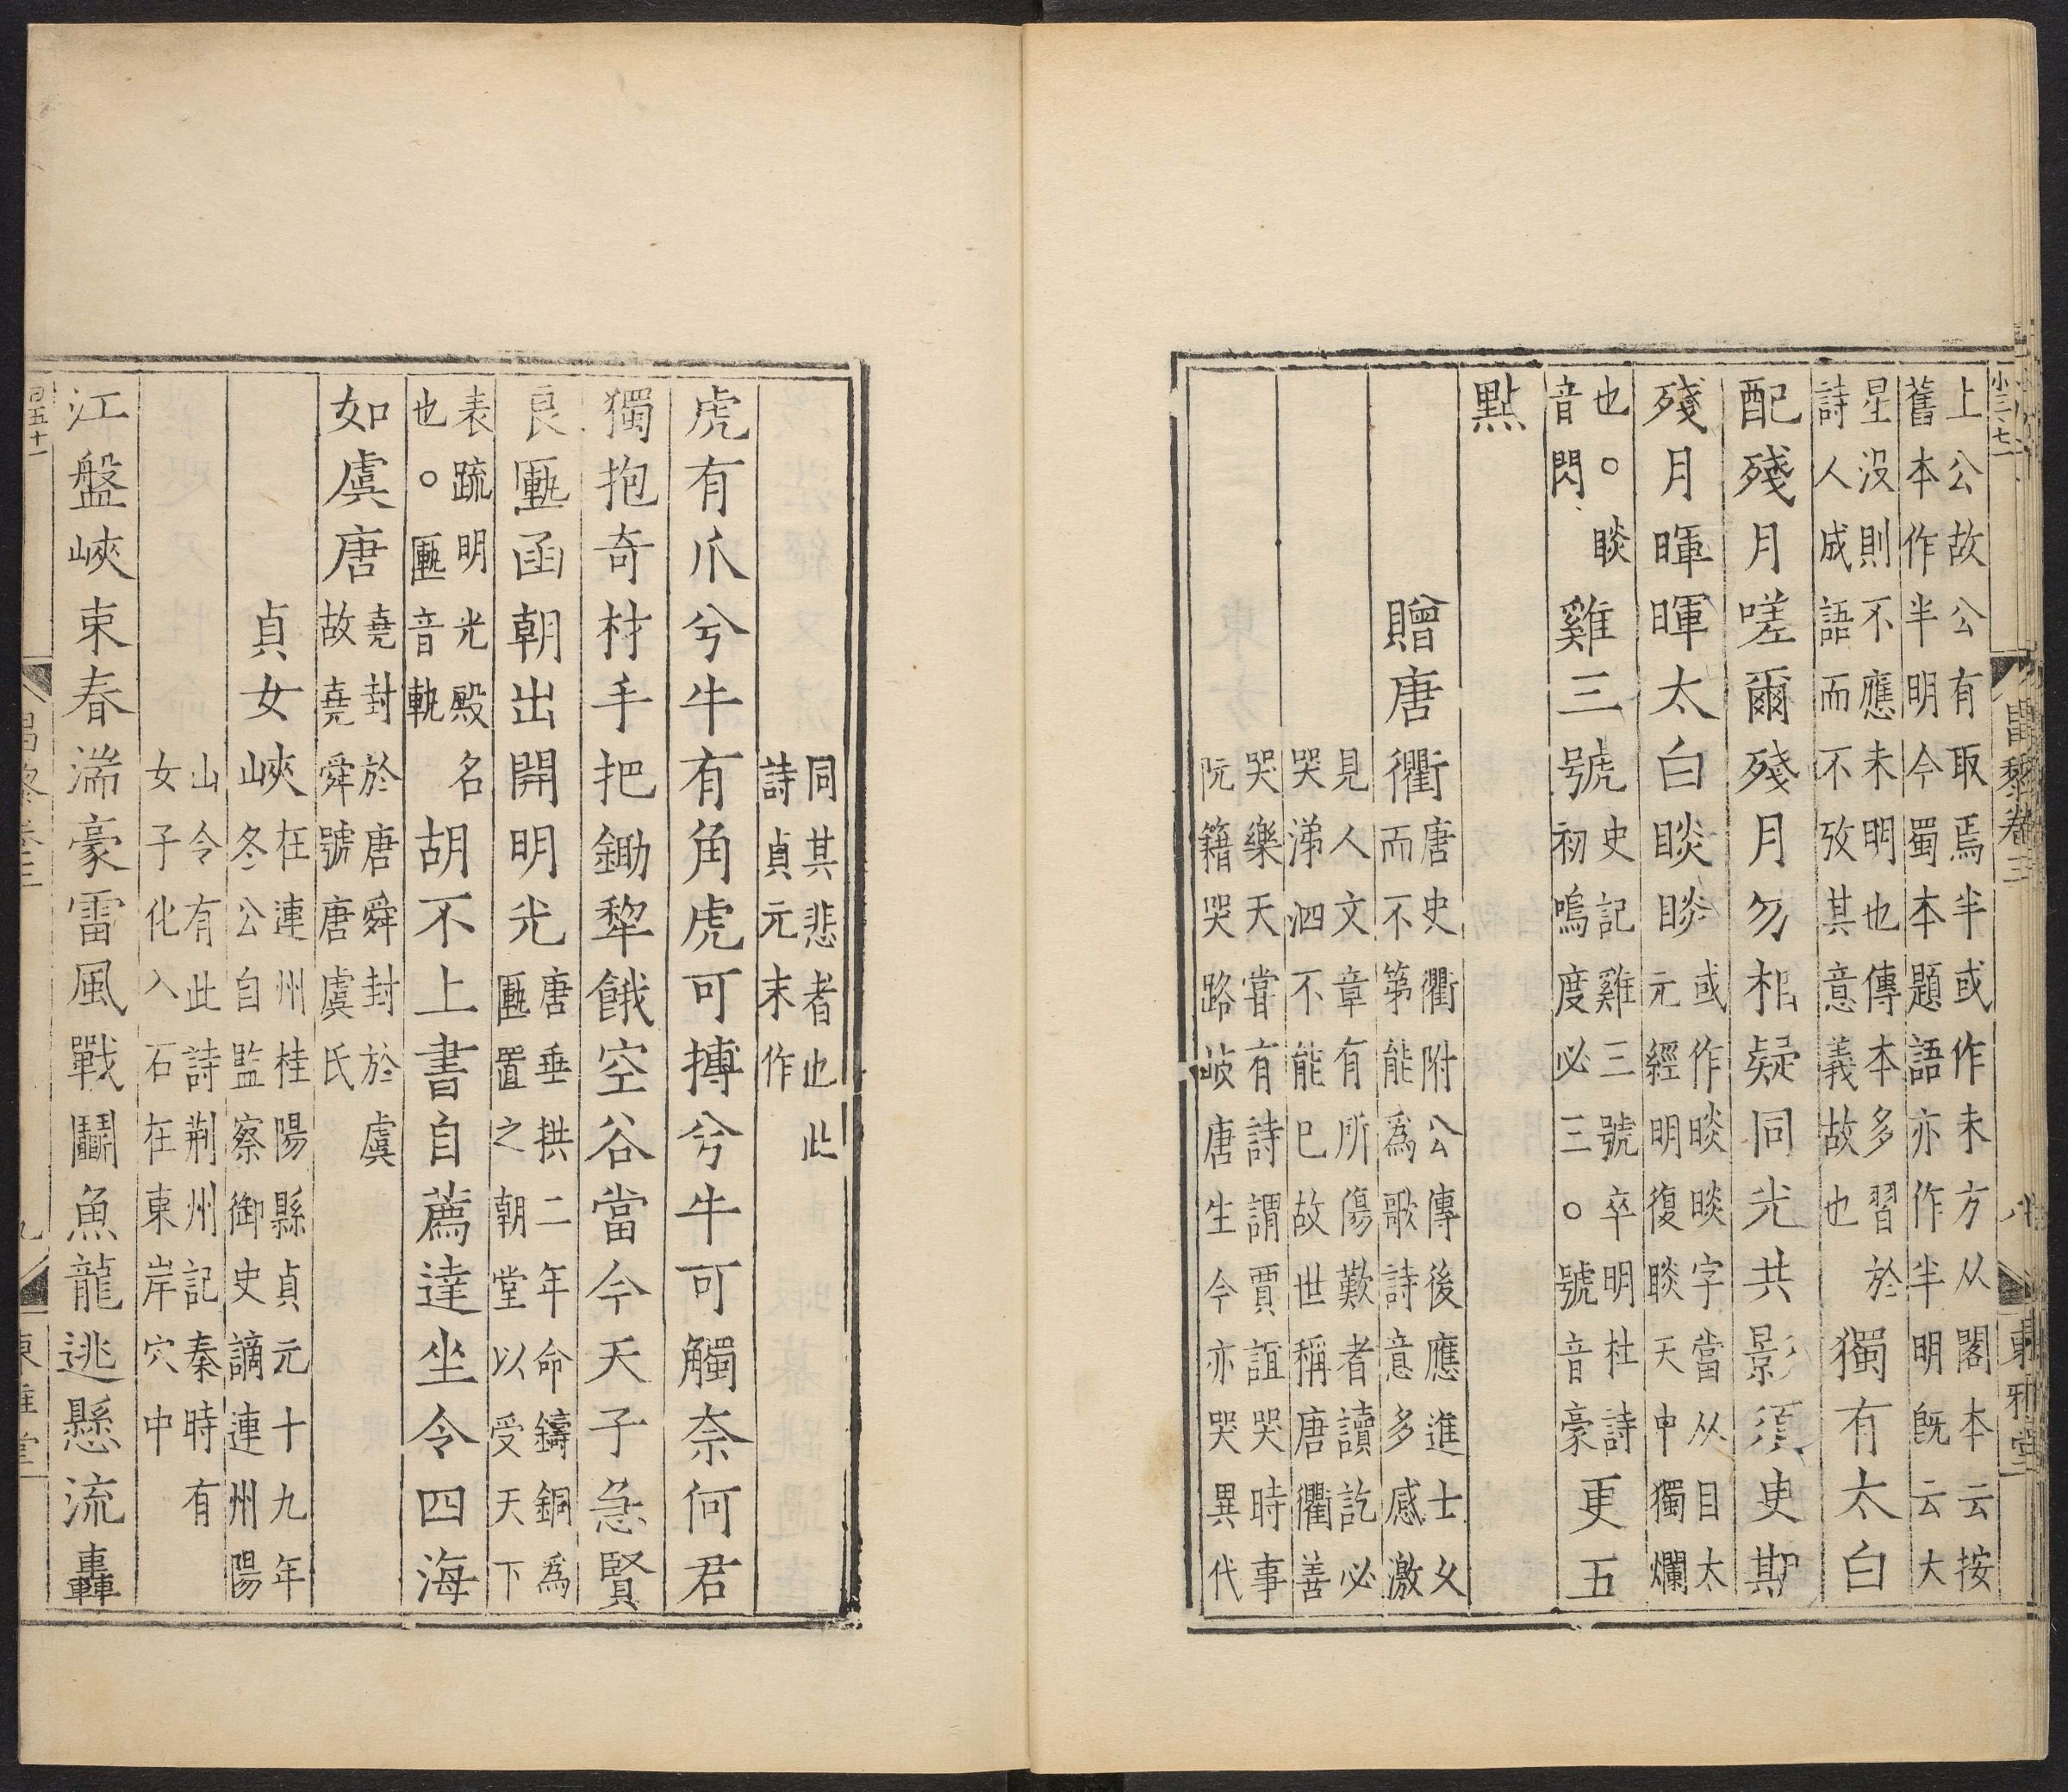 昌黎卷三 八 東雅堂
上公故公有取焉半或作未方从閣本云按
舊本作半明今蜀本題語亦作半明旣云大
星没則不應未明也傳本多習於
詩人成語而不攷其意義故也獨有太白
配殘月嗟爾殘月勿相疑同光共影須臾期
殘月暉暉太白睒睒或作晱晱字當从目太
元經明復睒天中獨爛
也。睒
音閃雞三號史記雞三號卒明杜詩
初鳴度必三。號音豪更五
點
贈唐衢唐史衢附公傳後應進士久
而不第能爲歌詩意多感激
見人文章有所傷歎者讀訖必
哭涕泗不能已故世稱唐衢善
哭樂天嘗有詩謂賈誼哭時事
阮籍哭路岐唐生今亦哭異代
同其悲者也此
詩貞元末作
虎有爪兮牛有角虎可搏兮牛可觸奈何君
獨抱奇材手把鋤犂餓空谷當今天子急賢
良匭函朝出開明光唐垂拱二年命鑄銅爲
匭置之朝堂以受天下
表疏明光殿名
也。匭音軌胡不上書自薦達坐令四海
如虞唐堯封於唐舜封於虞
故堯舜號唐虞氏
貞女峽在連州桂陽縣貞元十九年
冬公自監察御史謫連州陽
山令有此詩荆州記秦時有
女子化入石在東岸穴中
江盤峽束春湍豪雷風戰鬭魚龍逃懸流轟
昌黎卷三 九 東雅堂